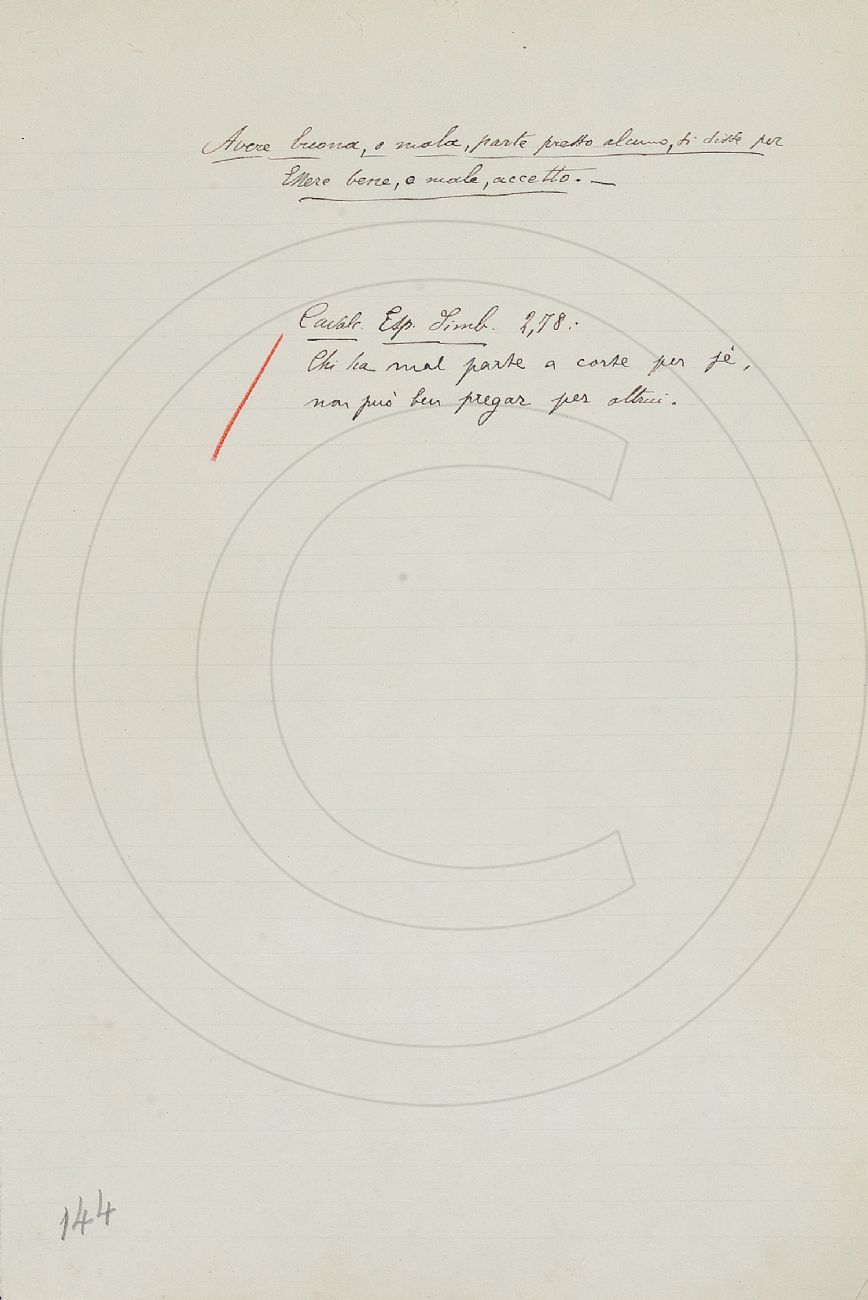 Avere buona, o mala, parte presso alcuno, si disse per
Essere bene, o male, accetto. —
Cavalc. Esp. Simb. 2,78:
Chi ha mal parte a corte per sè,
non può ben pregar per altrui.
144